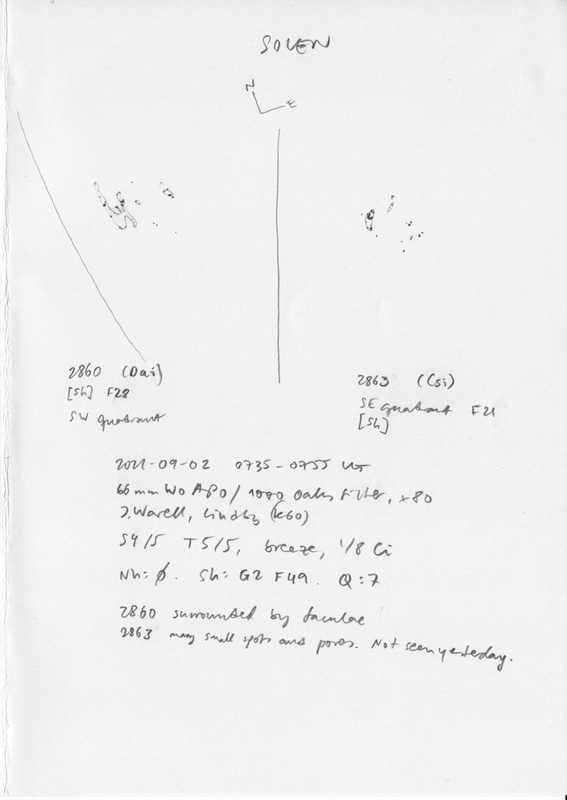 SOLEN
N
E
2860 (Dai)
[Sh] F28
SW quadrant
2863 (Csi)
SE quadrant F21
[Sh]
2021-09-02 0735-0755 UT
66 mm WO APO / 1000 Oaks Filter, x80
J. Warell, Lindby (K60)
S4/5 T5/5, breeze, 1/8 Ci
Nh: Ø. Sh: G2 F49. Q: 7
2860 surrounded by faculae
2863 many small spots and pores. Not seen yesterday.